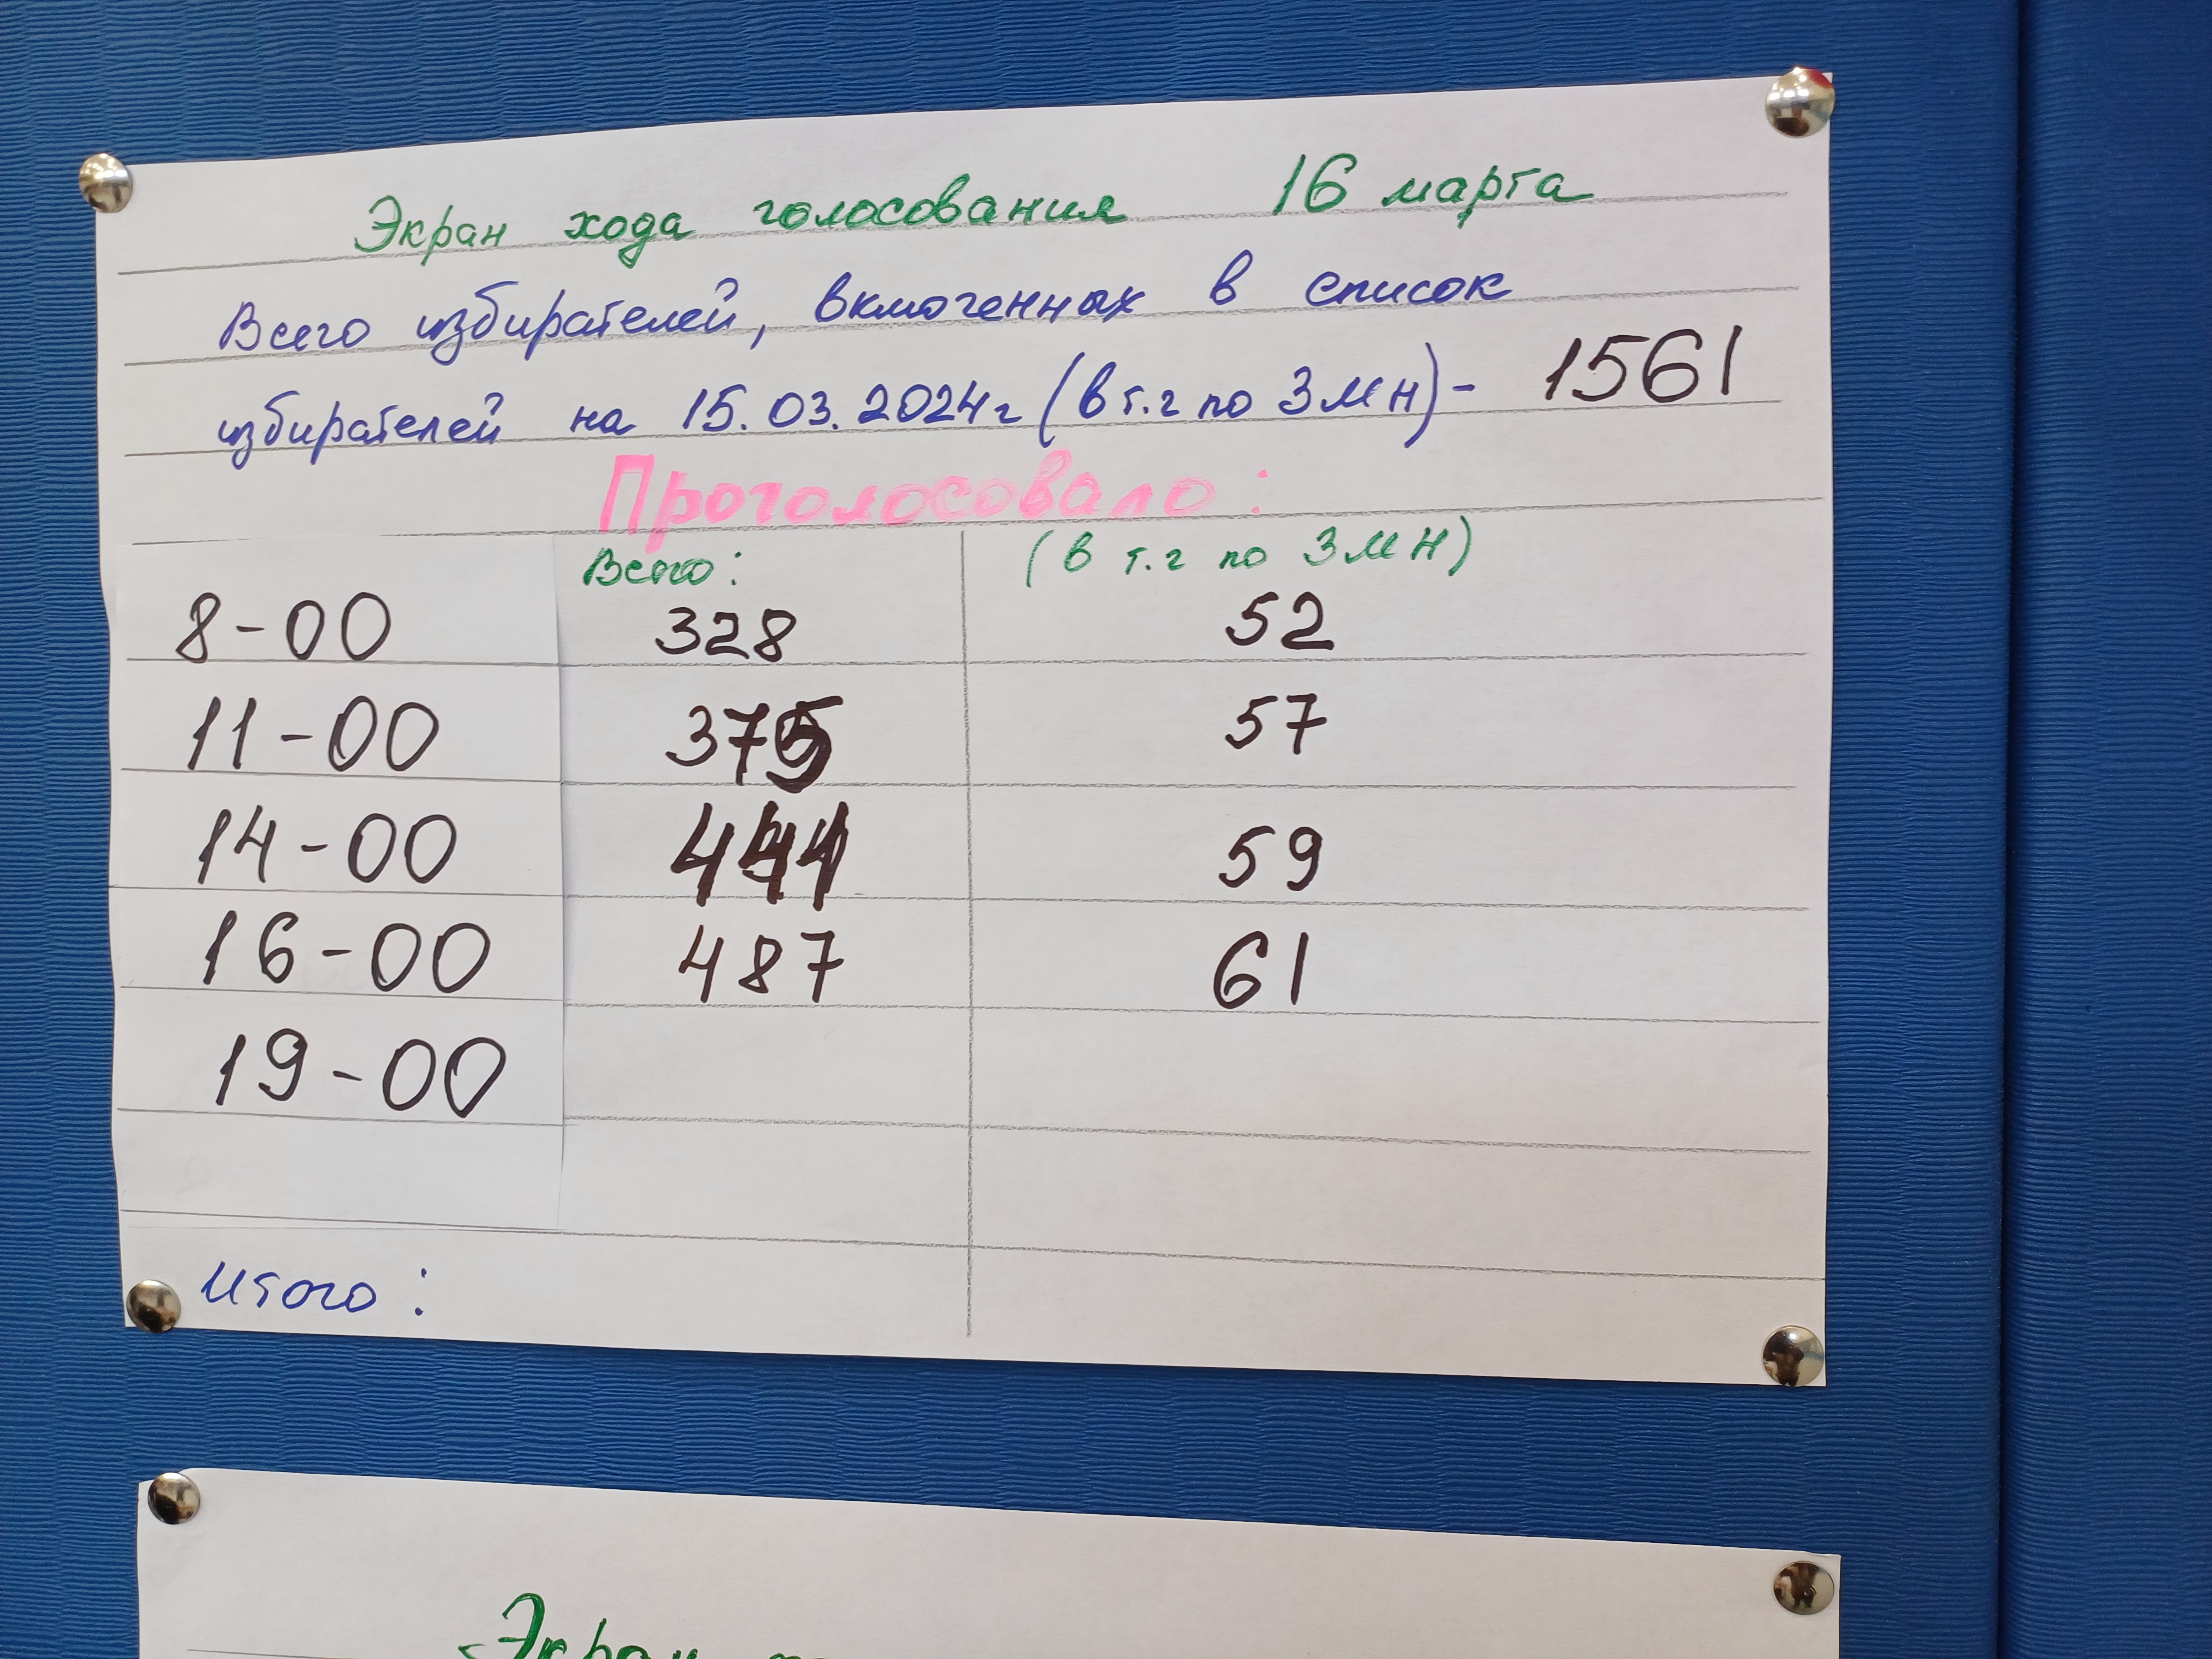 Экран хода голосования 16 марта
Всего избирателей, включенных в список
избирателей на 15.03.2024г (в т.ч по ЗМН) - 1561
Проголосовало:
Всего: (в т.ч по ЗМН)
8-00 328 52
11-00 375 57
14-00 59
16-00 487 61
19-00
Итого:
Экран